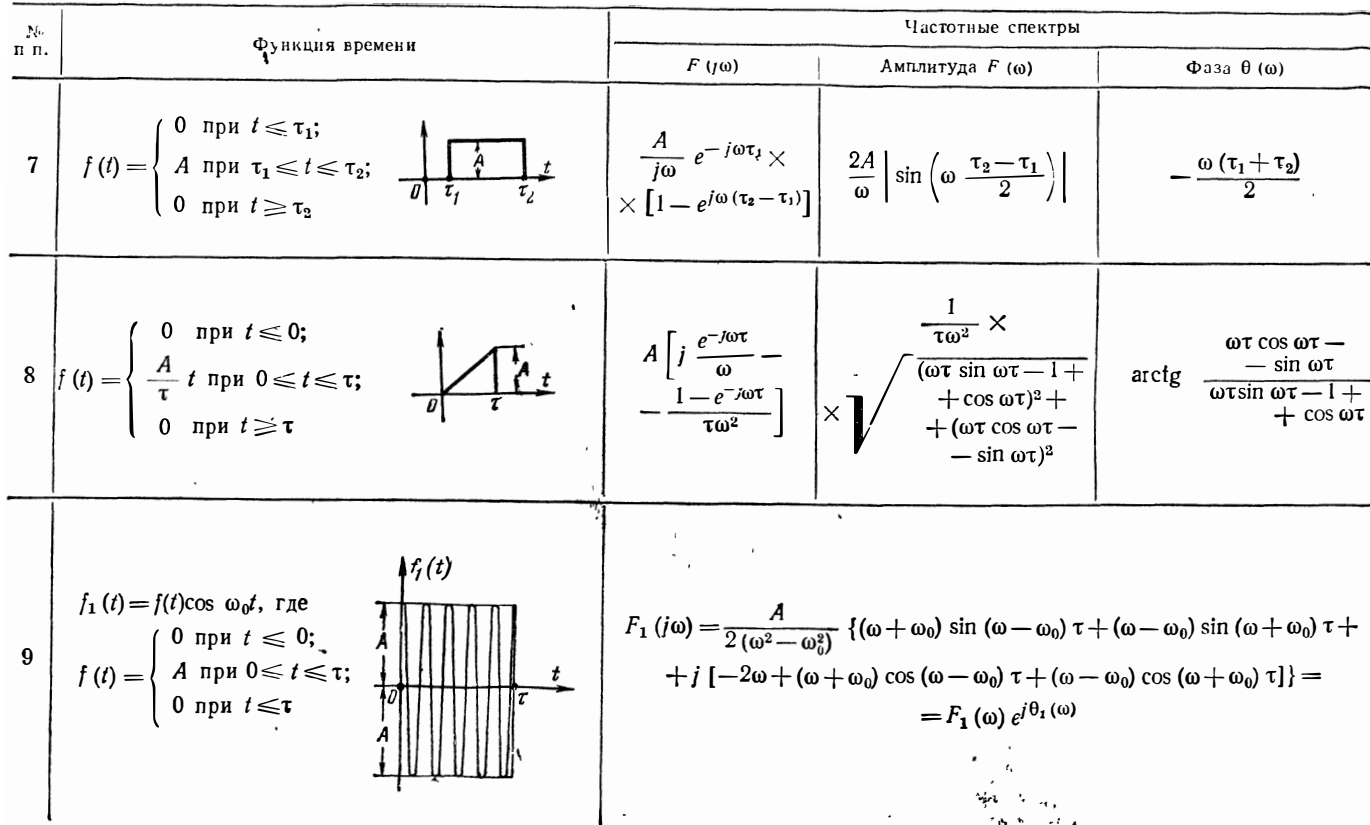 № п п. | Функция времени | Частотные спектры
F (jω) | Амплитуда F (ω) | Фаза θ (ω)
7
f (t) = { 0 при t ⩽ τ₁;
A при τ₁ ⩽ t ⩽ τ₂;
0 при t ⩾ τ₂
A
0 τ₁ τ₂ t
A/(jω) e^(− jωτ₁) ×
× [1 — e^(jω (τ₂ − τ₁))]
2A/ω | sin (ω (τ₂ − τ₁)/2) |
− ω (τ₁ + τ₂)/2
8
f (t) = { 0 при t ⩽ 0;
A/τ t при 0 ⩽ t ⩽ τ;
0 при t ⩾ τ
A
0 τ t
A [ j e^(−jωτ)/ω −
− (1 − e^(−jωτ))/(τω²) ]
1/(τω²) ×
× √ (ωτ sin ωτ − 1 +
+ cos ωτ)² +
+ (ωτ cos ωτ —
— sin ωτ)²
arctg
ωτ cos ωτ —
— sin ωτ
ωτ sin ωτ — 1 +
+ cos ωτ
9
f₁ (t) = f(t)cos ω₀t, где
f (t) = { 0 при t ⩽ 0;
A при 0 ⩽ t ⩽ τ;
0 при t ⩽ τ
f₁(t)
A
0 τ t
A
F₁ (jω) = A/(2 (ω² − ω₀²)) {(ω + ω₀) sin (ω − ω₀) τ + (ω − ω₀) sin (ω + ω₀) τ +
+ j [−2ω + (ω + ω₀) cos (ω − ω₀) τ + (ω − ω₀) cos (ω + ω₀) τ]} =
= F₁ (ω) e^(jθ₁ (ω))